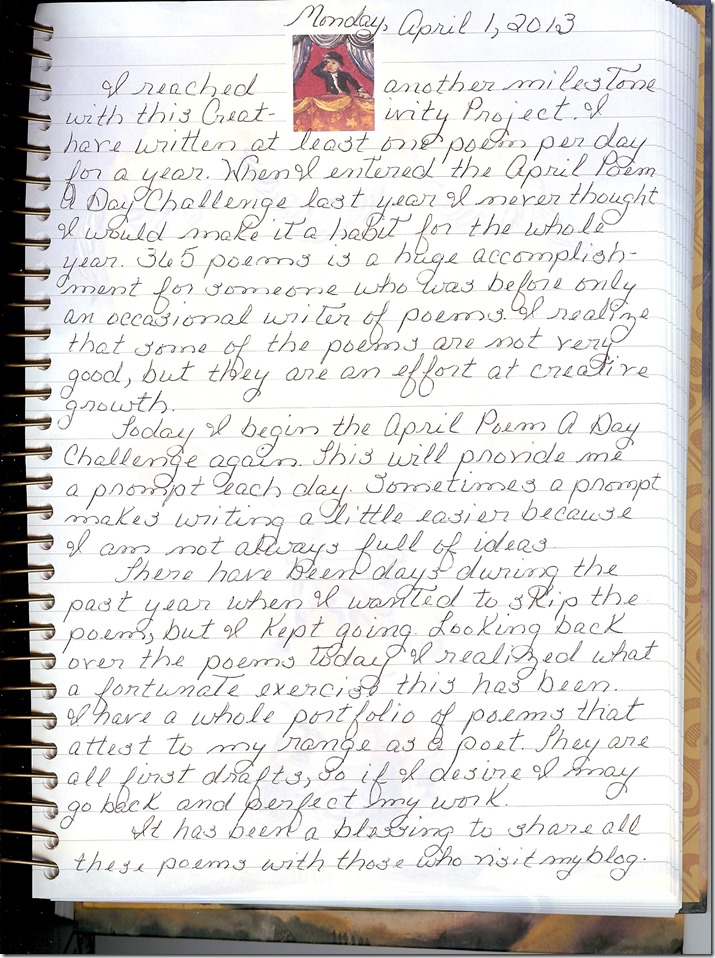 Monday, April 1, 2013
I reached another milestone
with this Creat- ivity Project. I
have written at least one poem per day
for a year. When I entered the April Poem
A Day Challenge last year I never thought
I would make it a habit for the whole
year. 365 poems is a huge accomplish-
ment for someone who was before only
an occasional writer of poems. I realize
that some of the poems are not very
good, but they are an effort at creative
growth.
Today I begin the April Poem A Day
Challenge again. This will provide me
a prompt each day. Sometimes a prompt
makes writing a little easier because
I am not always full of ideas.
There have been days during the
past year when I wanted to skip the
poem, but I kept going. Looking back
over the poems today I realized what
a fortunate exercise this has been.
I have a whole portfolio of poems that
attest to my range as a poet. They are
all first drafts, so if I desire I may
go back and perfect my work.
It has been a blessing to share all
these poems with those who visit my blog.